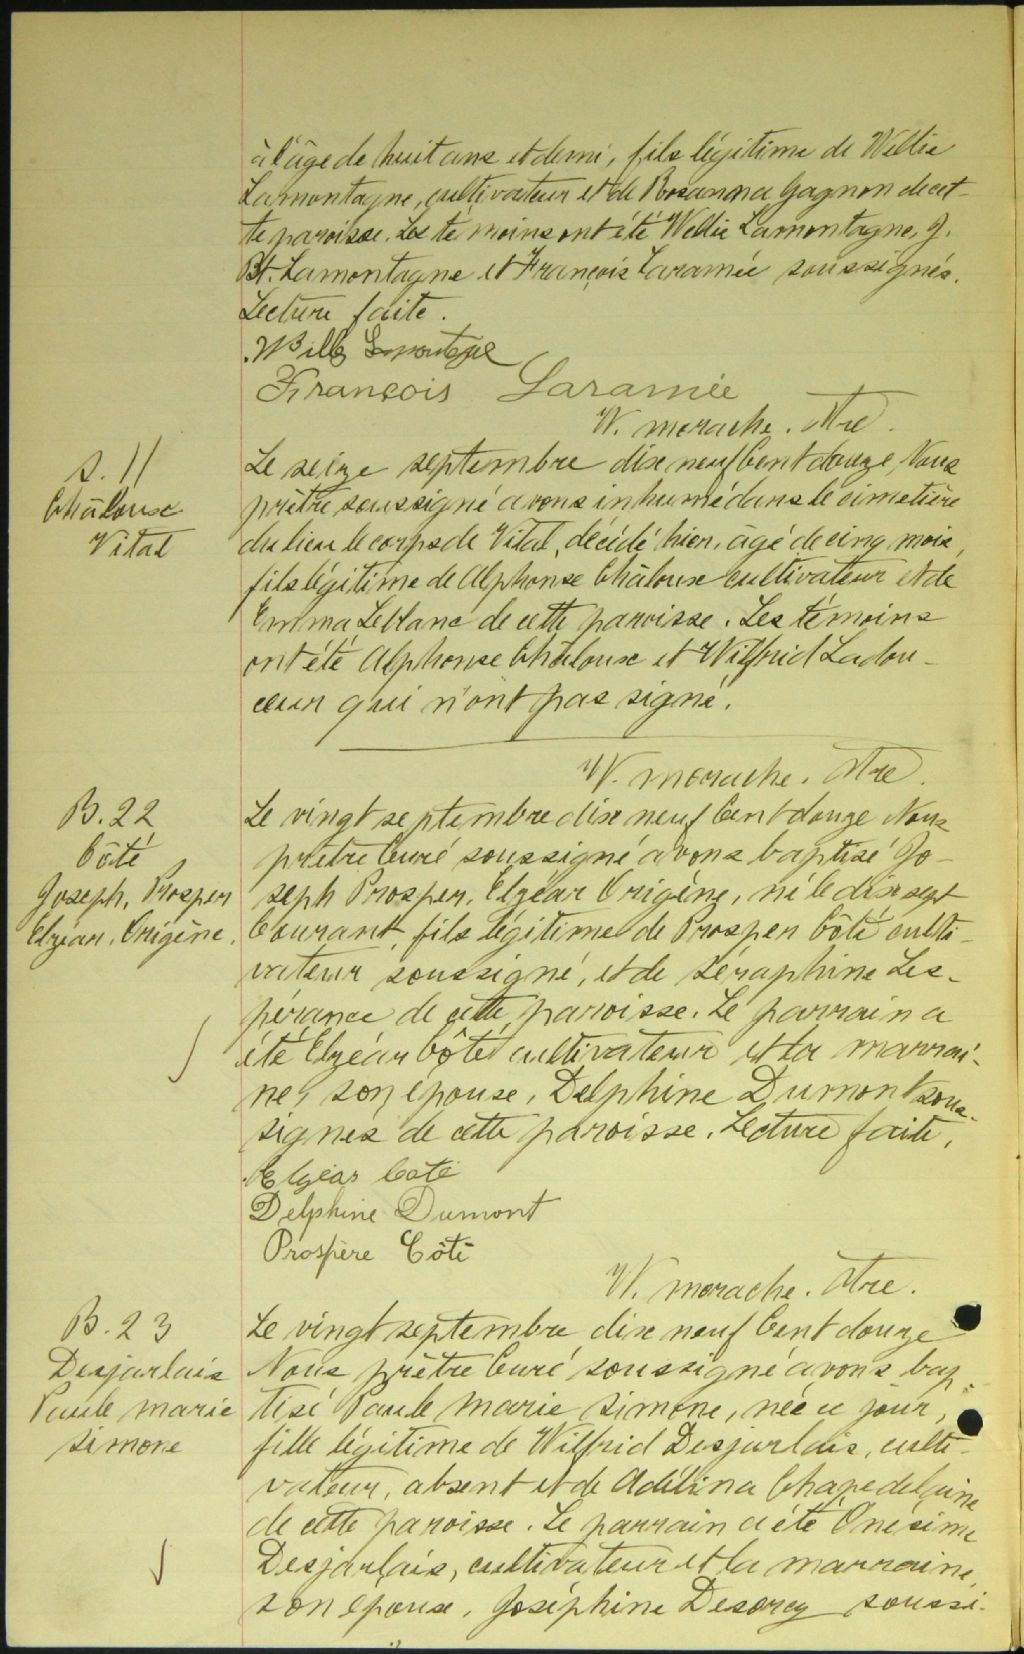 à l'âge de huit ans et demi, fils légitime de Willie
Lamontagne, cultivateur et de Rosanna Gagnon de cet-
te paroisse. Les témoins ont été Willie Lamontagne, J.
Bt. Lamontagne et François Laramée soussignés.
Lecture faite.
François Laramée
W. Morache. Ptre.
S. 11
Châloux
Vital
Le seize septembre dix neuf Cent douze, Nous
prêtre soussigné avons inhumé dans le cimetière
du lieu le corps de Vital, décédé hier, âgé de cinq mois,
fils légitime de Alphonse Châloux cultivateur et de
Emma Leblanc de cette paroisse. Les témoins
ont été Alphonse Châloux et Wilfrid Ladou-
ceur qui n'ont pas signé.
W. Morache. Ptre.
B. 22
Côté
Joseph, Prosper
Elzéar, Origène.
Le vingt septembre dix neuf Cent douze Nous
prêtre Curé soussigné avons baptisé Jo-
seph Prosper, Elzéar Origène, né le dix sept
Courant, fils légitime de Prosper Côté culti-
vateur soussigné, et de Séraphine Les-
pérance de cette paroisse. Le parrain a
été Elzéar Côté cultivateur et la marrai-
ne, son épouse, Delphine Dumont sous-
signés de cette paroisse. Lecture faite.
Elzéar Coté
Delphine Dumont
Prospère Côté
W. Morache. Ptre.
B. 23
Desjarlais
Paule Marie
Simone
Le vingt septembre dix neuf Cent douze
Nous prêtre Curé soussigné avons bap
tisé Paule Marie Simone, née ce jour,
fille légitime de Wilfrid Desjarlais, culti-
vateur, absent et de Adélina Chapedelaine
de cette paroisse. Le parrain a été Onésime
Desjarlais, cultivateur et la marraine,
son épouse, Joséphine Desorcy soussi-